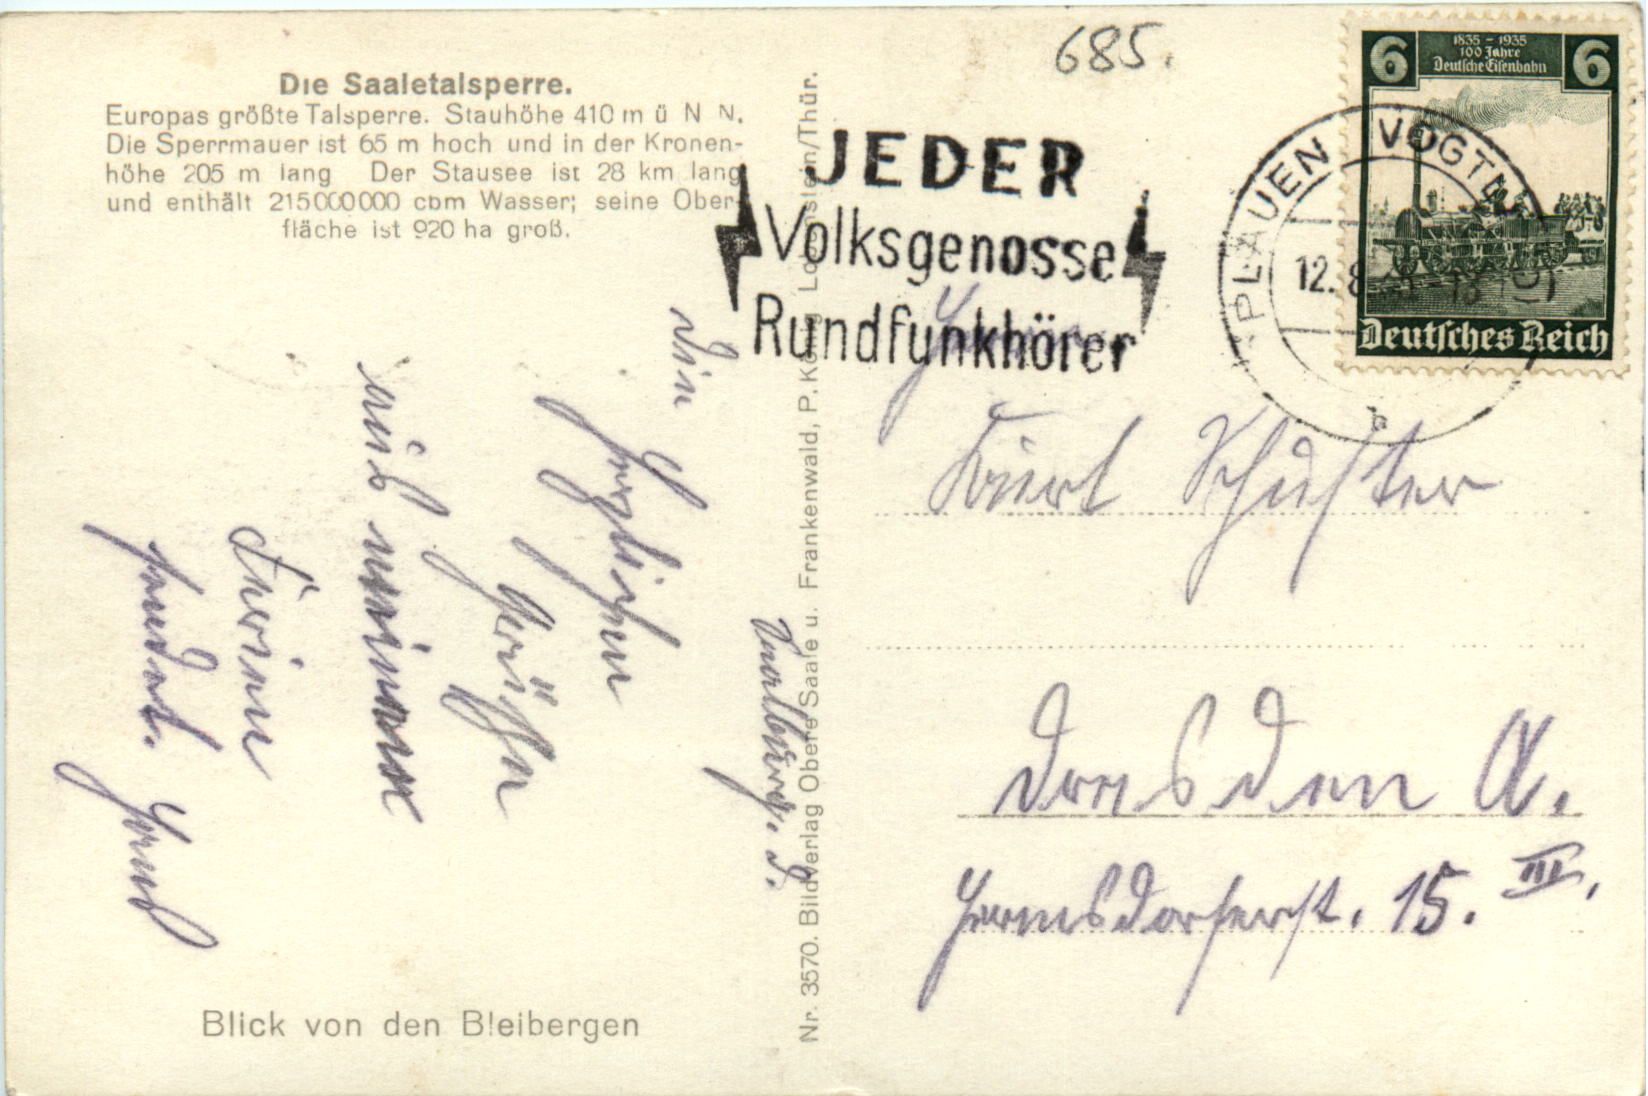 685.
Die Saaletalsperre.
Europas größte Talsperre. Stauhöhe 410 m ü N N.
Die Sperrmauer ist 65 m hoch und in der Kronen-
höhe 205 m lang Der Stausee ist 28 km lang
und enthält 215000000 cbm Wasser; seine Ober-
fläche ist 920 ha groß.
JEDER
Volksgenosse
Rundfunkhörer
PLAUEN VOGTL
12.8
b
6
1835 - 1935
100 Jahre
Deutsche Eisenbahn
6
Deutsches Reich
Die
herzlichen
Grüße
aus meinen
Ferien
sendet. Horst
Nr. 3570. Bildverlag Obere Saale u. Frankenwald, P. K
Thür.
Herrn
Kurt Schuster
Dresden A.
Hermsdorferst. 15. III.
Blick von den Bleibergen